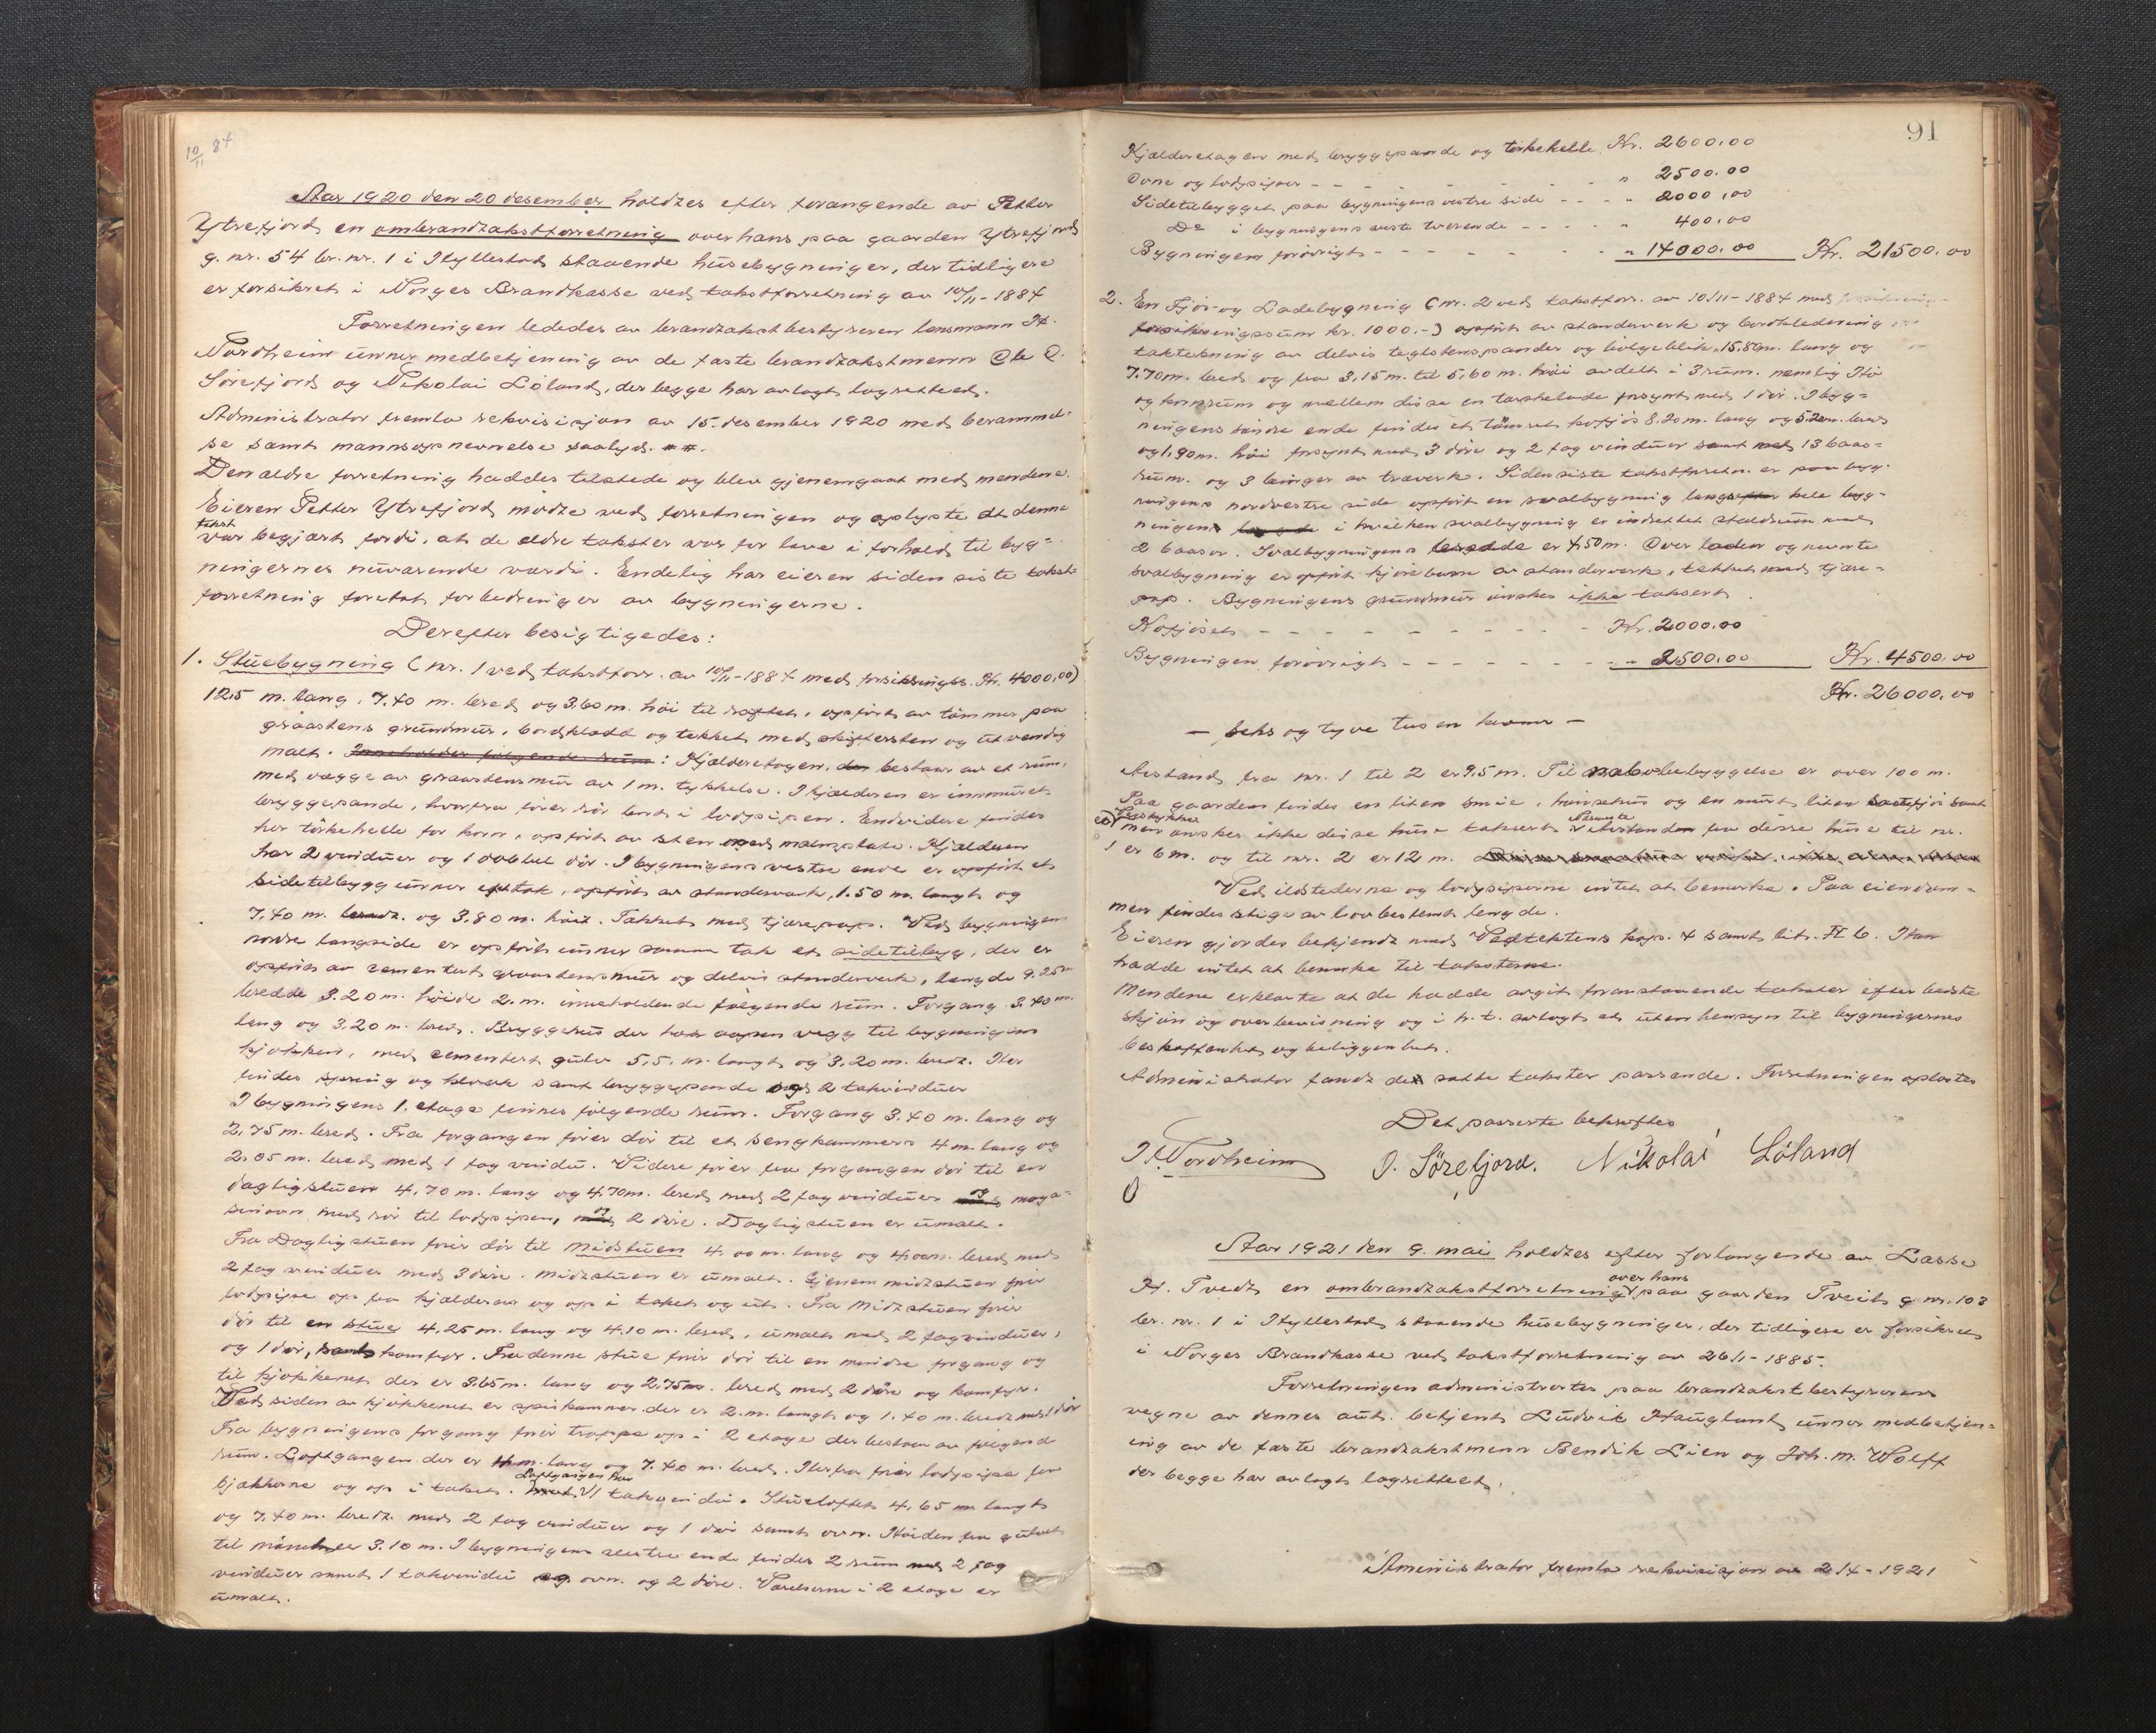 10/11 84
Aar 1920 den 20 desember holdtes efter forangende av Petter
Ytrefjord en ombrandtakstforretning over hans paa gaarden Ytrefjord
g. nr. 54 br. nr. 1 i Hyllestad staaende husebygninger, der tidligere
er forsikret i Norges Brandkasse ved takstforretning av 10/11-1884
Forretningen lededes av brandtakstbestyreren lensmann H.
Nordheim unner medbetjening av de faste brandtakstmenn Ole O.
Sørefjord og Nikolai Løland, der begge har avlagt lagretteed.
Administrator fremla rekvisisjon av 15. desember 1920 med berammel-
se samt mannsopnevnelse saalyd. # #.
Den ældre forretning haddes tilstede og blev gjenemgaat med mendene.
Eieren Petter Ytrefjord møtte ved forretningen og oplyste at denne
takst
var begjært fordi, at de eldre takster var for lave i forhold til byg-
ningernes nuværende værdi. Endelig har eieren siden siste takst-
forretning foretat forbedringer av bygningerne.
Derefter besigtigedes:
1. Stuebygning (nr. 1 ved takstforr. av 10/11-1884 med forsikringss. Kr. 4000,00)
12,5 m. lang, 7,40 m. bred og 3,60 m. høi til røftet, opført av tømmer paa
graastens grundmur, bordklædd og tekket med skiffersten og utvendig
malt. Inneholder følgende rum: Kjælderetagen, der bestaar av et rum,
med vægge av graastensmur av 1 m. tykkelse. I kjælderen er innmuret
bryggepande, hvorfra fører rør bort i lodpipen. Endvidere findes
her tørkehelle for korn, opført av sten med malmplate. Kjælderen
har 2 vinduer og 1 dobbel dør. I bygningens vestre ende er opført et
sidetilbygg unner ett tak, opført av standerverk, 1.50 m. langt og
7,40 m. bredt. og 3,80 m. høit. Takket med tjærepap. Ved bygningens
nordre langside er opført unner samme tak et sidetilbyg, der er
opført av sementert graastensmur og delvis standerverk, længde 9.25 m
bredde 3.20 m. høide 2. m. inneholdende følgende rum. Forgang 3.40 m.
lang og 3,20 m. bred. Bryggehus der har aapen vegg til bygningens
kjøkken, med sementert gulv 5,5. m. langt og 3,20 m. bredt. Her
findes spring og kverk samt bryggepande og 2 takvinduer
I bygningens 1. etage finnes følgende rum. Forgang 3.40 m. lang og
2,75 m. bred. Fra forgangen fører dør til et sengkammers 4 m. lang og
2.05 m. bred med 1 fag vindu. Videre fører fra forgangen dør til en
dagligstuen 4,70 m. lang og 4,70 m. bred med 2 fag vinduer og maga-
sinovn med rør til lodpipen, og 2 døre. Dagligstuen er umalt.
Fra Dagligstuen fører dør til midstuen 4,00 m. lang og 4,00 m. bred med
2 fag vinduer med 3 døre. midtstuen er umalt. Gjenem midtstuen fører
lodpipe op fra kjælderen og op i taket og ut. Fra midtstuen fører
dør til en stue 4,25 m. lang og 4.10 m. bred, umalt med 2 fag vinduer,
og 1 dør, samt komfyr. Fra denne stue fører dør til en mindre forgang og
til kjøkkenet der er 3.65 m. lang og 2,75 m. bred med 2 døre og komfyr.
Ved siden av kjøkkenet er spiskammer der er 2. m. langt og 1.40 m. bredt med 1 dør
Fra bygningens forgang fører trappe op i 2 etage der bestaar av følgende
rum. Loftgangen der er m. lang og 7.40 m. bred. Herfra fører lodpipe fra
Loftgangen har
kjøkkene og op i taket. 1 takvindu. Stueloftet 4,65 m. langt
og 7,40 m. bredt med 2 fag vinduer og 1 dør samt ovn. Høiden fra gulvet
til mønet er 3.10 m. I bygningens vestre ende findes 2 rum med 2 fag
vinduer samt 1 takvindu og ovn. og 2 døre. Værelserne i 2 etage er
umalt.
91
Kjælderetagen med bryggepande og tørkehelle Kr. 2600.00
Ovne og lodpiper - - - - - - " 2500.00
Sidetilbygget paa bygningens vestre side - - - " 2000,00
Do i bygningens vestre tverende - - - - " 400,00
Bygningen forøvrigt - - - - - - " 14000.00 Kr. 21500,00
2. En Fjøs- og Ladebygning (nr. 2 ved takstforr. av 10/11-1884 med
forsikringssum kr. 1000.-) opført av standerverk og bordklædning
taktekning av delvis teglstenspander og bølgeblik, 15,80 m. lang og
7,70 m. bred og fra 3,15 m. til 5,60 m. høi avdelt i 3 rum. nemlig Hø
og kornrum og mellem disse en tærskelade forsynt med 1 dør. I byg-
ningens søndre ende findes et tømret kofjøs 8.20 m. lang og 5.20 m. bred
og 1,90 m. høi forsynt med 3 døre og 2 fag vinduer samt med 13 baas-
rum. og 3 binger av træverk. Siden siste takstforretn. er paa byg-
ningens nordvestre side opført en svalbygning langsefter hele byg-
ningen i hvilken svalbygning er indrettet staldrum med
2 baaser. Svalbygningens bredde er 4,50 m. Over laden og nevnte
svalbygning er opført kjørebro av standerverk, tekket med tjære-
pap. Bygningens grundmur ønskes ikke taksert.
Kofjøset - - - - - - - - Kr. 2000.00
Bygningen forøvrigt - - - - - - " 2500.00 Kr. 4500.00
Kr. 26000,00
- seks og tyve tusen kroner -
Avstand fra nr. 1 til 2 er 9,5 m. Til nabobebyggelse er over 100 m.
Paa gaarden findes en liten smie, hønsehus og en murt liten sauefjøs samt
Nærmeste
men ønskes ikke disse huse taksert. Avstanden fra disse huse til nr.
1 er 6 m. og til nr. 2 er 12 m.
Ved ildstederne og lodpiperne intet at bemerke. Paa eiendom-
men findes stige av lovbestemt lengde.
Eieren gjordes bekjendt med Vedtektens kap. 4 samt lit. H 6. Han
hadde intet at bemerke til taksterne.
Mendene erklærte at de hadde avgit foranstaaende takster efter bedste
skjøn og overbevisning og i h. t. avlagt ed uten hensyn til bygningernes
beskaffenhet og beliggenhet.
Administrator fandt den satte takster passende. Forretningen oplæstes
Det passerte bekreftes
H. Nordheim O. Sørefjord. Nikolai Løland
Aar 1921 den 9. mai holdtes efter forlangende av Lasse
over hans
H. Tvedt en ombrandtakstforretning paa gaarden Tveit g. nr. 103
br. nr. 1 i Hyllestad staaende husebygninger, der tidligere er forsikret
i Norges Brandkasse ved takstforretning av 26/1-1885.
Forretningen administrertes paa brandtakstbestyrerens
vegne av dennes aut. betjent Ludvik Haugland unner medbetjen-
ing av de faste brandtakstmenn Bendik Lien og Joh. M. Wolff
der begge har avlagt lagretteed.
Aministrator fremla rekvisisjon av 2/4-1921